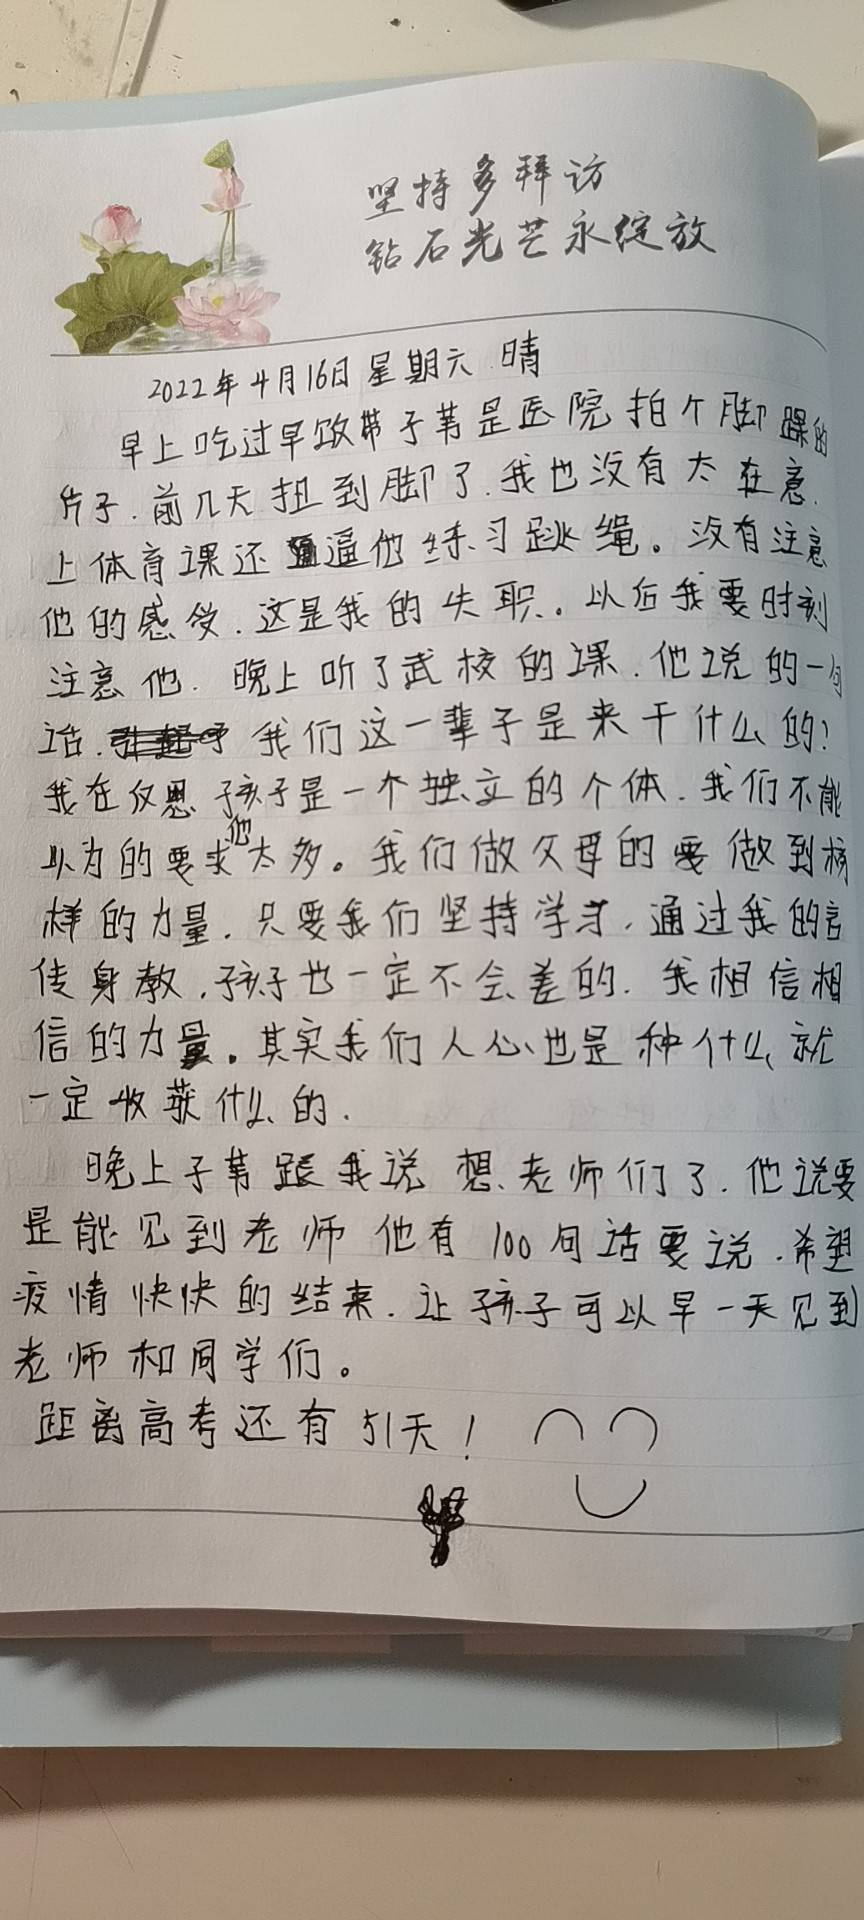 坚持多拜访
钻石光芒永绽放
2022年4月16日星期六.晴
早上吃过早饭带子苇是医院拍个脚踝的
片子.前几天扭到脚了.我也没有太在意.
上体育课还逼他练习跳绳。没有注意
他的感受.这是我的失职.。以后我要时刻
注意他.晚上听了武校的课.他说的一句
话.我们这一辈子是来干什么的?
我在反思孩子是一个独立的个体.我们不能
以为的要求他太多。我们做父母的要做到榜
样的力量.只要我们坚持学习.通过我的言
传身教.孩子也一定不会差的.我相信相
信的力量。其实我们人心也是种什么就
一定收获什么的.
晚上子苇跟我说想老师们了.他说要
是能见到老师他有100句话要说.希望
疫情快快的结束.让孩子可以早一天见到
老师和同学们。
距离高考还有51天!